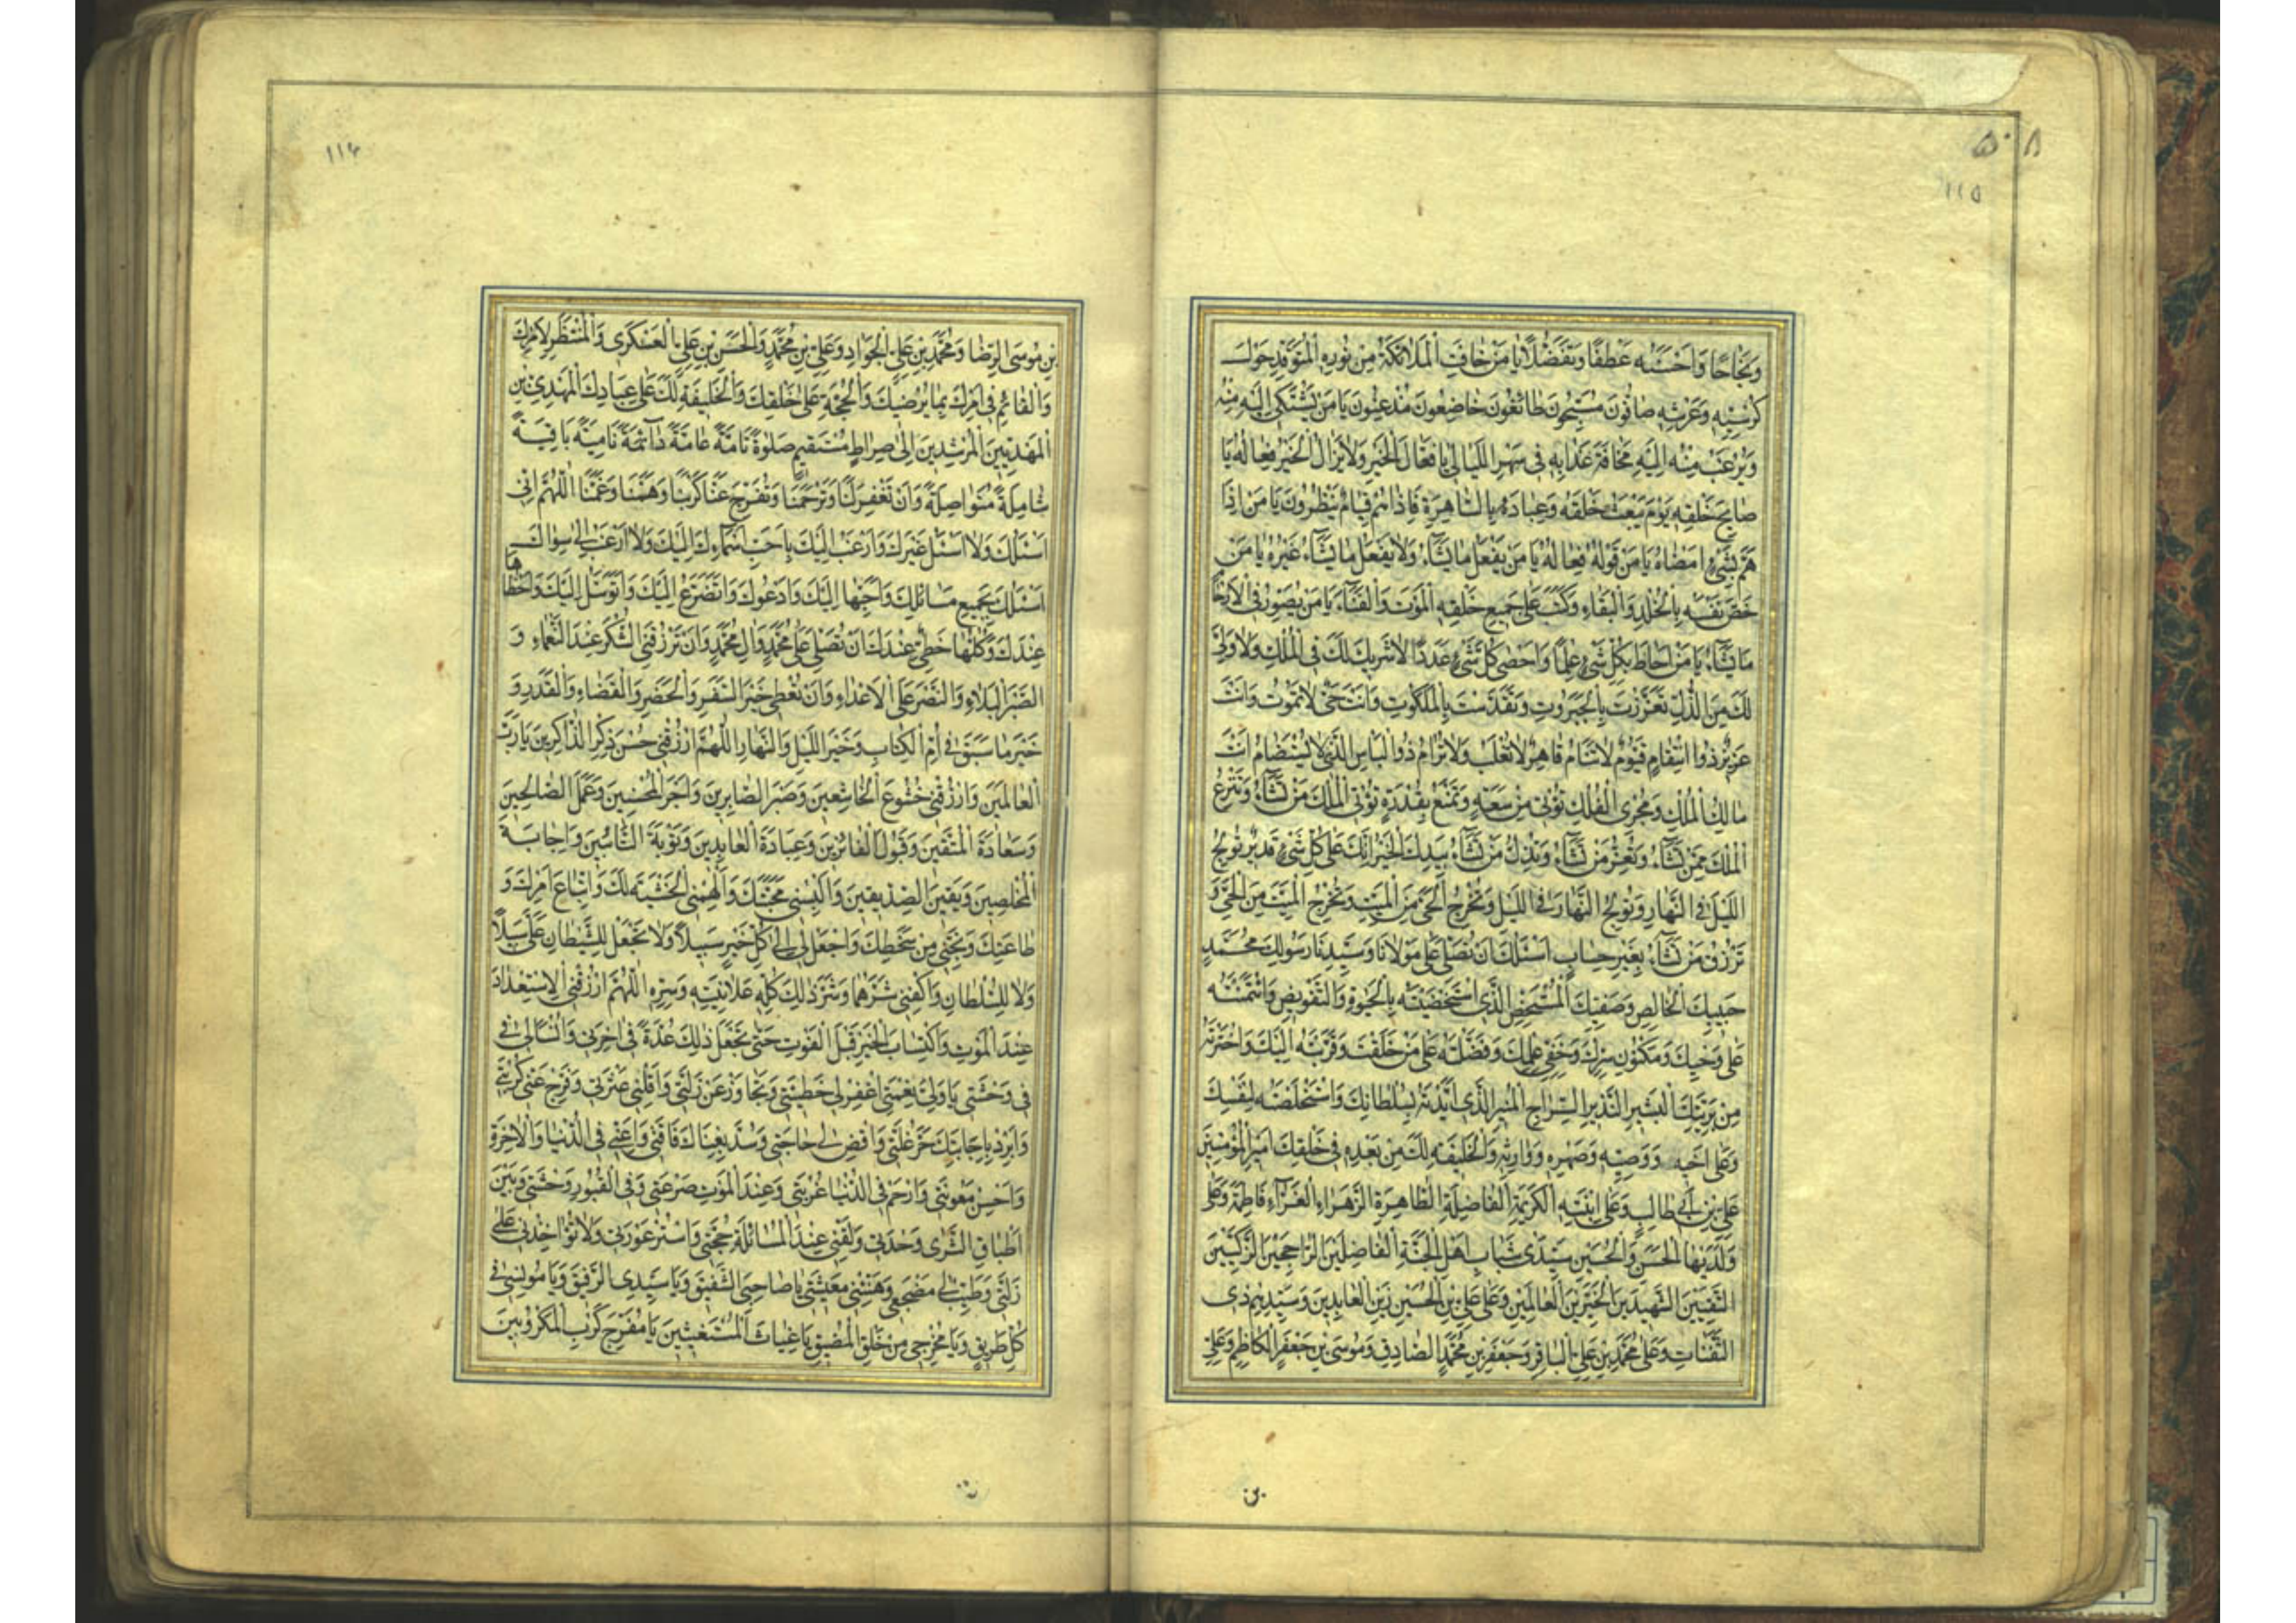 ۵۰۸
۱۱۵
وَنَجَاحًا وَاَحْسَنَهُ عَطْفًا وَتَفَضُّلًا يَا مَنْ خَافَتِ الْمَلَائِكَةُ مِنْ نُورِهِ الْمُتَوَقِّدِ حَوْلَ
كُرْسِيِّهِ وَعَرْشِهِ صَافُّونَ مُسَبِّحُونَ طَائِعُونَ خَاضِعُونَ مُذْعِنُونَ يَا مَنْ يُشْتَكٰى اِلَيْهِ مِنْهُ
وَيُرْغَبُ مِنْهُ اِلَيْهِ مَخَافَةَ عَذَابِهِ فِى سَهَرِ اللَّيَالِى يَا فَعَّالَ الْخَيْرِ وَلَا يَزَالُ الْخَيْرُ فِعَالَهُ يَا
صَايِحَ خَلْقِهِ يَوْمَ يَبْعَثُ خَلْقَهُ وَعِبَادَهُ بِالسَّاهِرَةِ فَاِذَاهُمْ قِيَامٌ يَنْظُرُونَ يَا مَنْ اِذَا
هَمَّ بِشَىْءٍ اَمْضَاهُ يَا مَنْ قَوْلُهُ فِعَالُهُ يَا مَنْ يَفْعَلُ مَا يَشَآءُ وَلَا يَفْعَلُ مَا يَشَآءُ غَيْرُهُ يَا مَنْ
خَصَّ نَفْسَهُ بِالْخُلْدِ وَالْبَقَاءِ وَكَتَبَ عَلٰى جَمِيعِ خَلْقِهِ الْمَوْتَ وَالْفَنَآءَ يَا مَنْ يُصَوِّرُ فِى الْاَرْحَا
مَا يَشَآءُ يَا مَنْ اَحَاطَ بِكُلِّ شَىْءٍ عِلْمًا وَاَحْصٰى كُلَّ شَىْءٍ عَدَدًا لَا شَرِيكَ لَكَ فِى الْمُلْكِ وَلَا وَلِىَّ
لَكَ مِنَ الذُّلِّ تَعَزَّزْتَ بِالْجَبَرُوتِ وَتَقَدَّسْتَ بِالْمَلَكُوتِ وَاَنْتَ حَىٌّ لَا تَمُوتُ وَاَنْتَ
عَزِيزٌ ذُوا انْتِقَامٍ قَيُّومٌ لَا تَنَامُ قَاهِرٌ لَا تُغْلَبُ وَلَا تُرَامُ ذُوالْبَاْسِ الَّذِى لَا يُسْتَضَامُ اَنْتَ
مَالِكُ الْمُلْكِ وَمُجْرِى الْفُلْكِ تُؤْتِى مِنْ سَعَةٍ وَتَمْنَعُ بِقُدْرَةٍ تُؤْتِى الْمُلْكَ مَنْ تَشَآءُ وَتَنْزِعُ
الْمُلْكَ مِمَّنْ تَشَآءُ وَتُعِزُّ مَنْ تَشَآءُ وَتُذِلُّ مَنْ تَشَآءُ بِيَدِكَ الْخَيْرُ اِنَّكَ عَلٰى كُلِّ شَىْءٍ قَدِيرٌ تُولِجُ
اللَّيْلَ فِى النَّهَارِ وَتُولِجُ النَّهَارَ فِى اللَّيْلِ وَتُخْرِجُ الْحَىَّ مِنَ الْمَيِّتِ وَتُخْرِجُ الْمَيِّتَ مِنَ الْحَىِّ وَ
تَرْزُقُ مَنْ تَشَآءُ بِغَيْرِ حِسَابٍ اَسْئَلُكَ اَنْ تُصَلِّىَ عَلٰى مَوْلَانَا وَسَيِّدِنَا رَسُولِكَ مُحَمَّدٍ
حَبِيبِكَ الْخَالِصِ وَصَفِيِّكَ الْمُسْتَخَصِّ الَّذِى اسْتَخْصَصْتَهُ بِالْحَيٰوةِ وَالتَّفْوِيضِ وَائْتَمَنْتَهُ
عَلٰى وَحْيِكَ وَمَكْنُونِ سِرِّكَ وَخَفِىِّ عِلْمِكَ وَفَضَّلْتَهُ عَلٰى مَنْ خَلَقْتَ وَقَرَّبْتَهُ اِلَيْكَ وَاخْتَرْتَهُ
مِنْ بَرِيَّتِكَ الْبَشِيرِ النَّذِيرِ السِّرَاجِ الْمُنِيرِ الَّذِى اَيَّدْتَهُ بِسُلْطَانِكَ وَاسْتَخْلَصْتَهُ لِنَفْسِكَ
وَعَلٰى اَخِيهِ وَوَصِيِّهِ وَصِهْرِهِ وَوَارِثِهِ وَالْخَلِيفَةِ لَكَ مِنْ بَعْدِهِ فِى خَلْقِكَ اَمِيرِ الْمُؤْمِنِينَ
عَلِىِّ بْنِ اَبِى طَالِبٍ وَعَلَى ابْنَتِهِ الْكَرِيمَةِ الْفَاضِلَةِ الطَّاهِرَةِ الزَّهْرَاءِ الْغَرَّآءِ فَاطِمَةَ وَعَلٰى
وَلَدَيْهَا الْحَسَنِ وَالْحُسَيْنِ سَيِّدَىْ شَبَابِ اَهْلِ الْجَنَّةِ الْفَاضِلَيْنِ الرَّاجِحَيْنِ الزَّكِيَّيْنِ
التَّقِيَّيْنِ الشَّهِيدَيْنِ الْخَيِّرَيْنِ الْعَالِمَيْنِ وَعَلٰى عَلِىِّ بْنِ الْحُسَيْنِ زَيْنِ الْعَابِدِينَ وَسَيِّدِهِمْ ذِى
الثَّفَنَاتِ وَعَلٰى مُحَمَّدِ بْنِ عَلِىٍّ الْبَاقِرِ وَجَعْفَرِ بْنِ مُحَمَّدٍ الصَّادِقِ وَمُوسَى بْنِ جَعْفَرٍ الْكَاظِمِ وَعَلِىِّ
بن
۱۱۶
بْنِ مُوسَى الرِّضَا وَمُحَمَّدِ بْنِ عَلِىٍّ الْجَوَادِ وَعَلِىِّ بْنِ مُحَمَّدٍ وَالْحَسَنِ بْنِ عَلِىٍّ الْعَسْكَرِى وَالْمُنْتَظَرِ لِاَمْرِكَ
وَالْقَائِمِ فِى اَرْضِكَ بِمَا يُرْضِيكَ وَالْحُجَّةِ عَلٰى خَلْقِكَ وَالْخَلِيفَةِ لَكَ عَلٰى عِبَادِكَ الْمَهْدِىِّ بْنِ
الْمَهْدِيِّينَ الْمُرْشِدِينَ اِلٰى صِرَاطٍ مُسْتَقِيمٍ صَلٰوةً تَامَّةً عَامَّةً دَآئِمَةً نَامِيَةً بَاقِيَةً
شَامِلَةً مُتَوَاصِلَةً وَاَنْ تَغْفِرَ لَنَا وَتَرْحَمَنَا وَتُفَرِّجَ عَنَّا كَرْبَنَا وَهَمَّنَا وَغَمَّنَا اَللّٰهُمَّ اِنِّى
اَسْئَلُكَ وَلَا اَسْئَلُ غَيْرَكَ وَاَرْغَبُ اِلَيْكَ بِاَحَبِّ اَسْمَآءِكَ اِلَيْكَ وَلَا اَرْغَبُ اِلٰى سِوَاكَ
اَسْئَلُكَ بِجَمِيعِ مَسَائِلِكَ وَاَحَبِّهَا اِلَيْكَ وَاَدْعُوكَ وَاَتَضَرَّعُ اِلَيْكَ وَاَتَوَسَّلُ اِلَيْكَ وَاَحْظَاهَا
عِنْدَكَ وَكُلُّهَا حَظِىٌّ عِنْدَكَ اَنْ تُصَلِّىَ عَلٰى مُحَمَّدٍ وَاٰلِ مُحَمَّدٍ وَاَنْ تَرْزُقَنِى الشُّكْرَ عِنْدَ النَّعْمَاءِ وَ
الصَّبْرَ الْبَلَاءِ وَالنَّصْرَ عَلَى الْاَعْدَاءِ وَاَنْ تُعْطِى خَيْرَ السَّفَرِ وَالْحَضَرِ وَالْقَضَاءِ وَالْقَدَرِ وَ
خَيْرَ مَا سَبَقَ فِى اُمِّ الْكِتَابِ وَخَيْرَ اللَّيْلِ وَالنَّهَارِ اَللّٰهُمَّ ارْزُقْنِى حُسْنَ ذِكْرِ الذَّاكِرِينَ يَا رَبَّ
الْعَالَمِينَ وَارْزُقْنِى خُشُوعَ الْخَاشِعِينَ وَصَبْرَ الصَّابِرِينَ وَاَجْرَ الْمُحْسِنِينَ وَعَمَلَ الصَّالِحِينَ
وَسَعَادَةَ الْمُتَّقِينَ وَقَبُولَ الْفَائِزِينَ وَعِبَادَةَ الْعَابِدِينَ وَتَوْبَةَ التَّائِبِينَ وَاِجَابَةَ
الْمُخْلَصِينَ وَيَقِينَ الصِّدِّيقِينَ وَاَلْبِسْنِى مَحَبَّتَكَ وَاَلْهِمْنِى الْخَشْيَةَ لَكَ وَاتِّبَاعَ اَمْرِكَ وَ
طَاعَتِكَ وَنَجِّنِى مِنْ سَخَطِكَ وَاجْعَلْ لِى اِلٰى كُلِّ خَيْرٍ سَبِيلًا وَلَا تَجْعَلْ لِلشَّيْطَانِ عَلَىَّ سَبِيلًا
وَلَا لِلسُّلْطَانِ وَاكْفِنِى شَرَّهُمَا وَشَرَّ ذٰلِكَ كُلِّهِ عَلَانِيَتِهِ وَسِرِّهِ اَللّٰهُمَّ ارْزُقْنِى الْاِسْتِعْدَادَ
عِنْدَ الْمَوْتِ وَاكْتِسَابَ الْخَيْرِ قَبْلَ الْفَوْتِ حَتّٰى تَجْعَلَ ذٰلِكَ عُدَّةً فِى اٰخِرَتِى وَاُنْسًا لِى فِى
فِى وَحْشَتِى يَا وَلِيِّى فِى نِعْمَتِى اغْفِرْ لِى خَطِيئَتِى وَتَجَاوَزْ عَنْ زَلَّتِى وَاَقِلْنِى عَثْرَتِى وَفَرِّجْ عَنِّى كُرْبَتِى
وَاَبْرِدْ بِاِجَابَتِكَ حَرَّ غُلَّتِى وَاقْضِ لِى حَاجَتِى وَسُدَّ بِغِنَاكَ فَاقَتِى وَاَعِنِّى فِى الدُّنْيَا وَالْاٰخِرَةِ
وَاَحْسِنْ مَعُونَتِى وَارْحَمْ فِى الدُّنْيَا غُرْبَتِى وَعِنْدَ الْمَوْتِ صَرْعَتِى وَفِى الْقُبُورِ وَحْشَتِى وَبَيْنَ
اَطْبَاقِ الثَّرٰى وَحْدَتِى وَلَقِّنِى عِنْدَ الْمَسَائَلَةِ حُجَّتِى وَاسْتُرْ عَوْرَتِى وَلَا تُؤَاخِذْنِى عَلٰى
زَلَّتِى وَطَيِّبْ لِى مَضْجَعِى وَهَنِّئْنِى مَعِيشَتِى يَا صَاحِبِىَ الشَّفِيقَ وَيَا سَيِّدِى الرَّفِيقَ وَيَا مُونِسِى فِى
كُلِّ طَرِيقٍ وَيَا مُخْرِجِى مِنْ حَلَقِ الْمَضِيقِ يَا غِيَاثَ الْمُسْتَغِيثِينَ يَا مُفَرِّجَ كَرْبِ الْمَكْرُوبِينَ